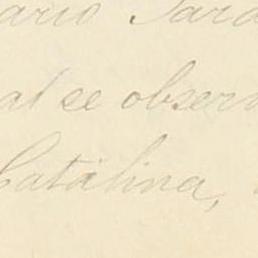 ario Sara
al se observ
Catalina,